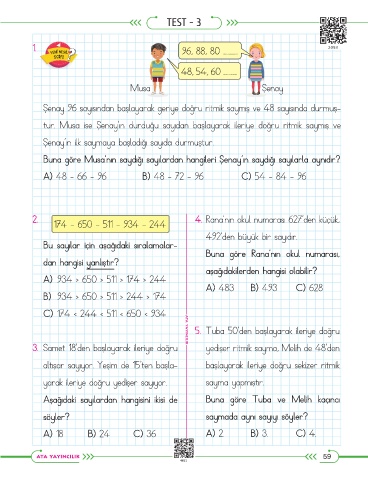 TEST - 3
1.
YENİ NESİL SORU
96, 88, 80 ........
48, 54, 60 ........
Musa
Şenay
Şenay 96 sayısından başlayarak geriye doğru ritmik saymış ve 48 sayısında durmuş-
tur. Musa ise Şenay'ın durduğu sayıdan başlayarak ileriye doğru ritmik saymış ve
Şenay'ın ilk saymaya başladığı sayıda durmuştur.
Buna göre Musa'nın saydığı sayılardan hangileri Şenay'ın saydığı sayılarla aynıdır?
A) 48 - 66 - 96 B) 48 - 72 - 96 C) 54 - 84 - 96
2.
174 - 650 - 511 - 934 - 244
Bu sayılar için aşağıdaki sıralamalar-
dan hangisi yanlıştır?
A) 934 > 650 > 511 > 174 > 244
B) 934 > 650 > 511 > 244 > 174
C) 174 < 244 < 511 < 650 < 934
3. Samet 18'den başlayarak ileriye doğru
altışar sayıyor. Yeşim de 15'ten başla-
yarak ileriye doğru yedişer sayıyor.
Aşağıdaki sayılardan hangisini ikisi de
söyler?
A) 18 B) 24 C) 36
4. Rana'nın okul numarası 627'den küçük,
492'den büyük bir sayıdır.
Buna göre Rana'nın okul numarası,
aşağıdakilerden hangisi olabilir?
A) 483 B) 493 C) 628
5. Tuba 50'den başlayarak ileriye doğru
yedişer ritmik sayma, Melih de 48'den
başlayarak ileriye doğru sekizer ritmik
sayma yapmıştır.
Buna göre Tuba ve Melih kaçıncı
saymada aynı sayıyı söyler?
A) 2. B) 3. C) 4.
ATA YAYINCILIK
59